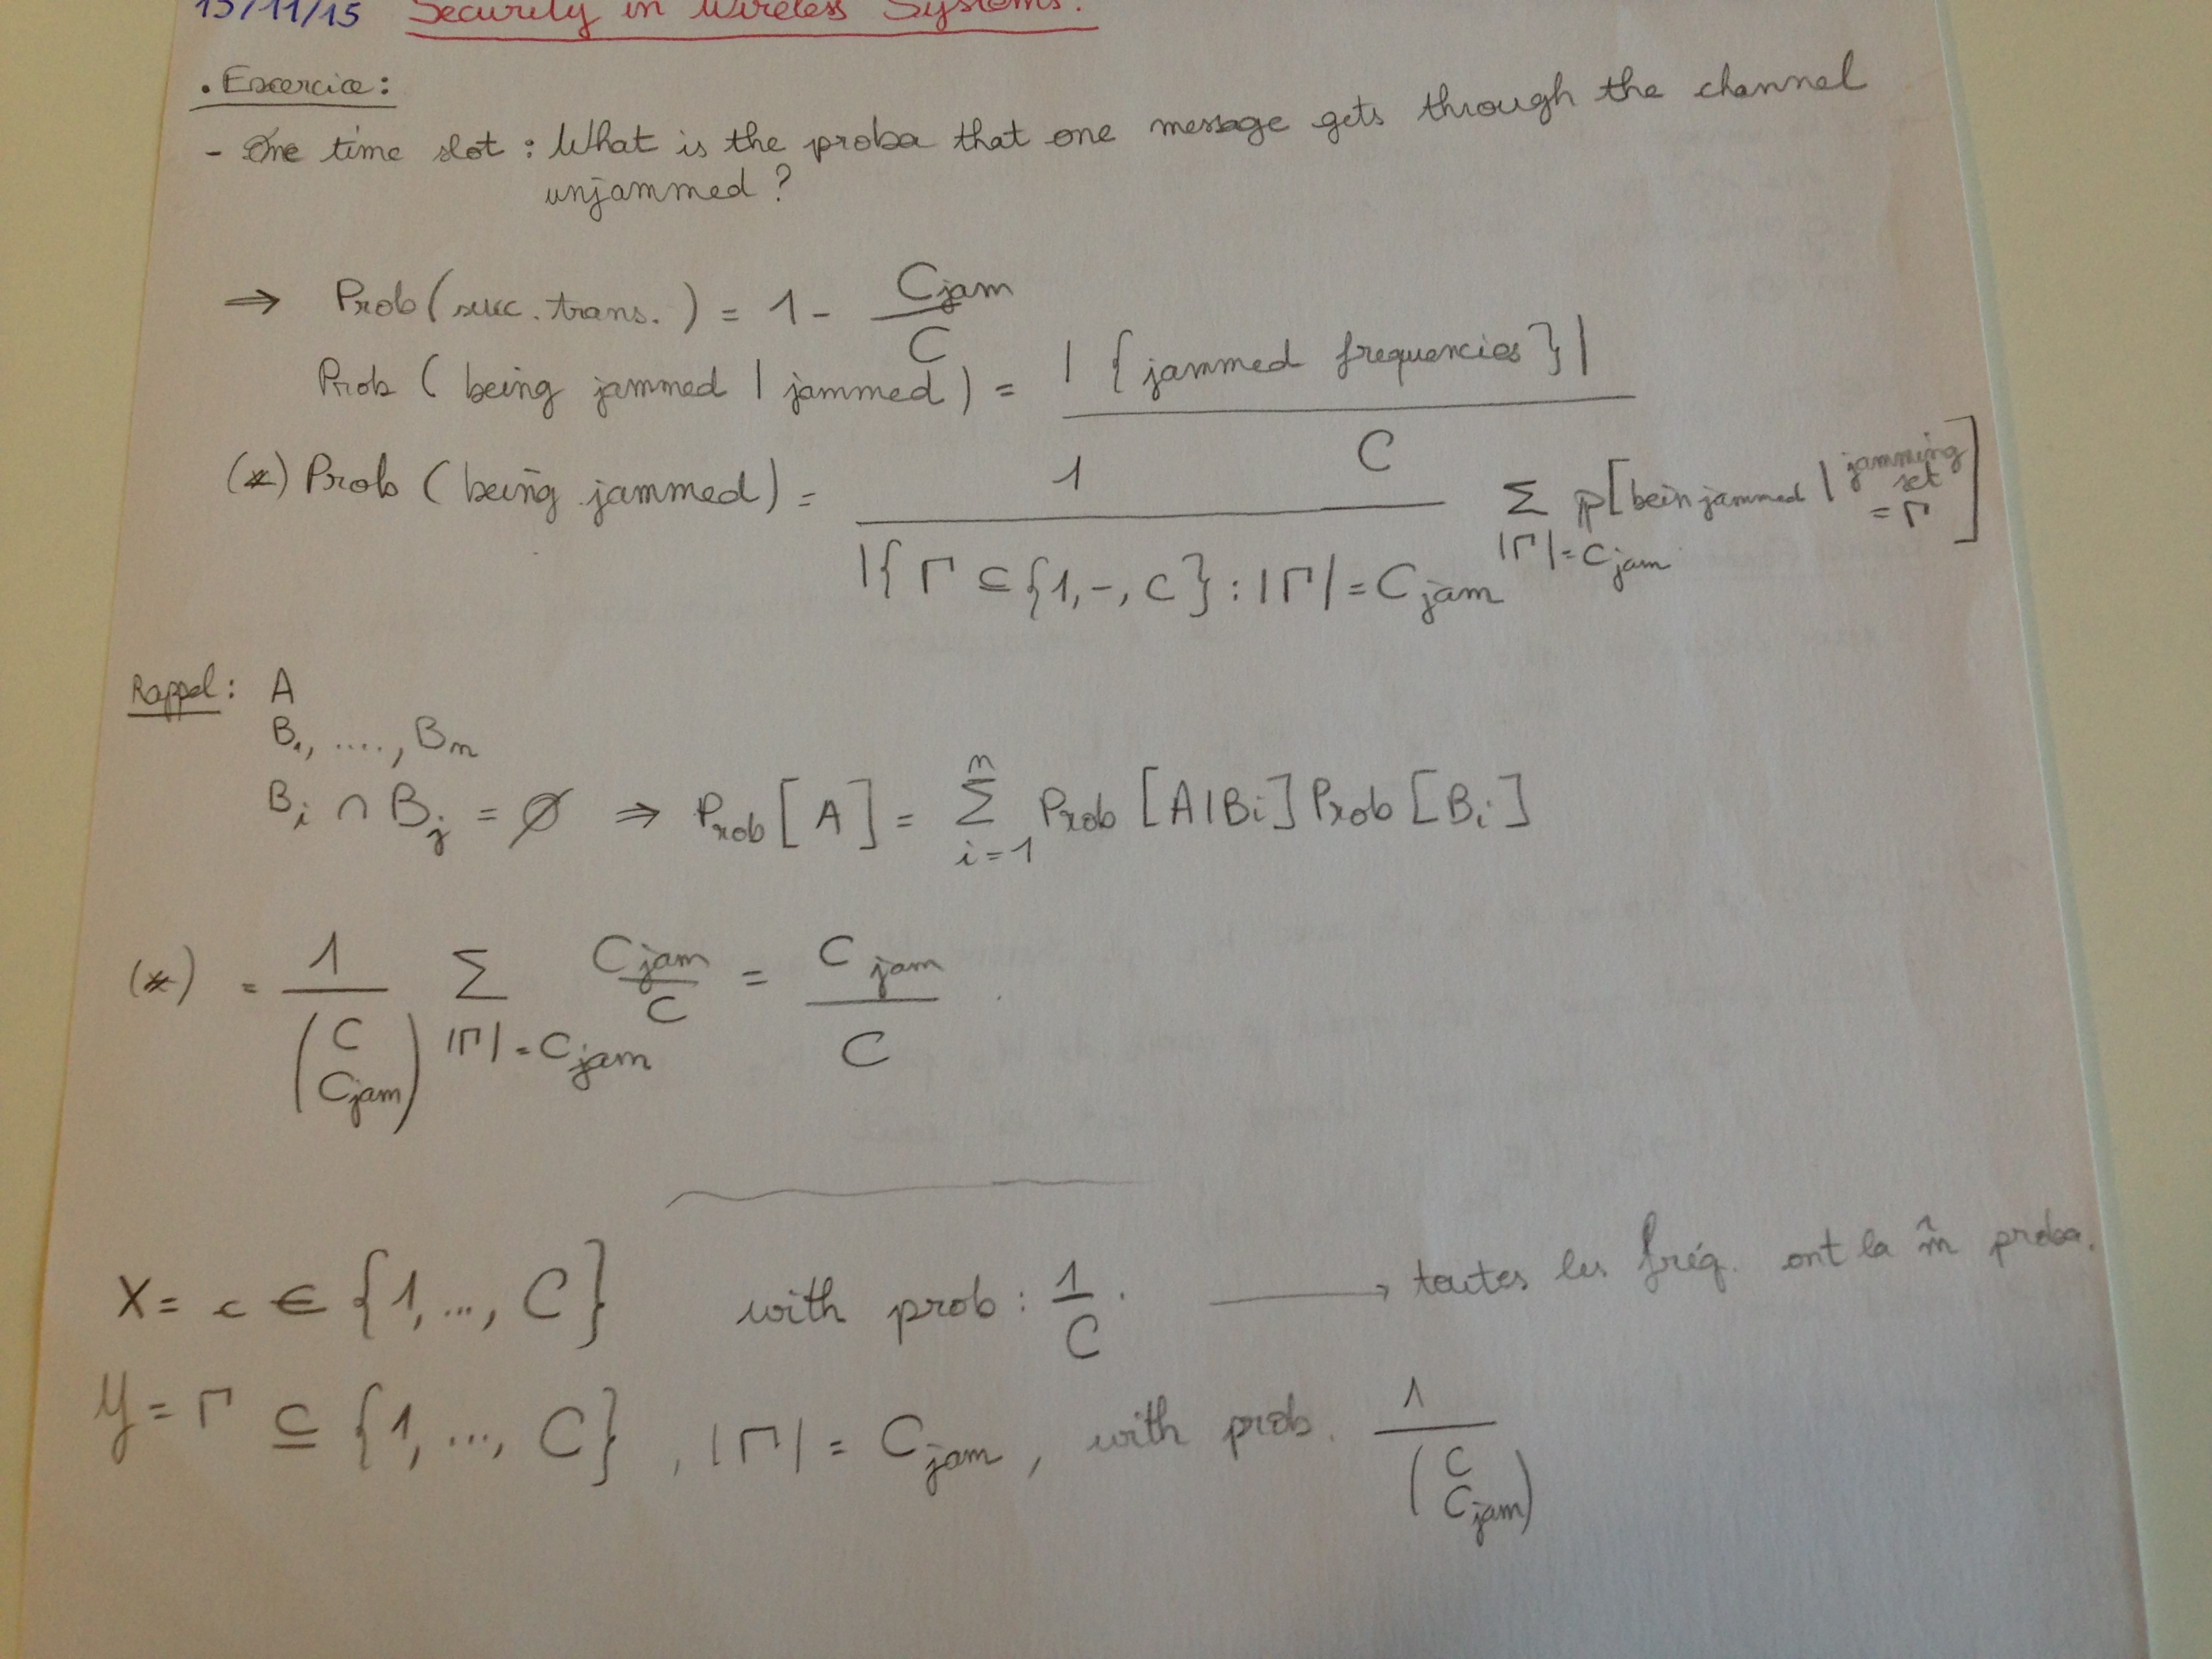 13/11/15 Security in Wireless Systems.
. Excercice :
- One time slot : What is the proba that one message gets through the channel
unjammed ?
⇒ Prob ( succ. trans. ) = 1 - Cjam / C
Prob ( being jammed | jammed ) = | { jammed frequencies } | / C
(*) Prob ( being jammed ) = 1 / |{ Γ ⊆ {1, -, C } : |Γ| = Cjam Σ |Γ| = Cjam P[ bein jammed | jamming set = Γ ]
Rappel : A
B1, ...., Bn
Bi ∩ Bj = ∅ ⇒ Prob [ A ] = Σ i=1 n Prob [ A | Bi ] Prob [ Bi ]
(*) = 1 / ( C Cjam ) Σ |Γ| = Cjam Cjam / C = Cjam / C
X = c ∈ { 1, ..., C } with prob : 1 / C . → toutes les fréq. ont la m̂ proba.
Y = Γ ⊆ { 1, ..., C } , |Γ| = Cjam , with prob. 1 / ( C Cjam )